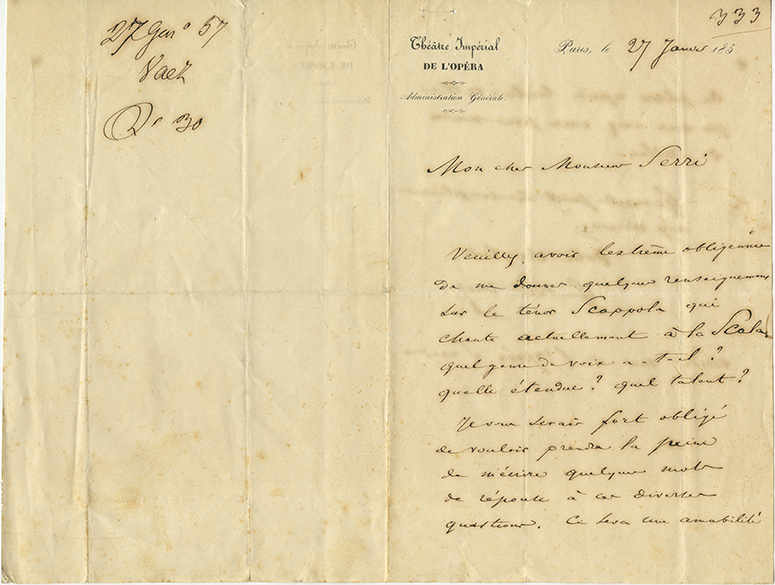 27 Gen.º 57
Vaez
Rº 30
333
Théâtre Impérial
DE L'OPÉRA
Administration Générale.
Paris, le 27 Janvier 185
Mon cher Monsieur Serri
Veuillez avoir l'extrême obligeance
de me donner quelques renseignements
sur le ténor Scappola qui
chante actuellement à la Scala.
quel genre de voix a-t-il?
quelle étendue? quel talent?
Je vous serais fort obligé
de vouloir prendre la peine
de m'écrire quelques mots
de réponse à ces diverses
questions. Ce sera une amabilité